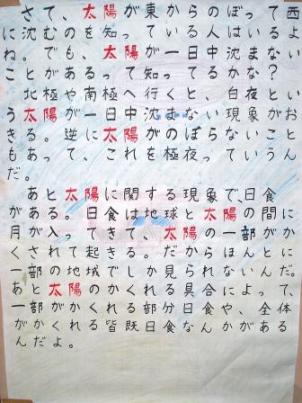 さて、太陽が東からのぼって西
に沈むのを知っている人はいるよ
ね。でも、太陽が一日中沈まない
ことがあるって知ってるかな?
北極や南極へ行くと、白夜とい
う太陽が一日中沈まない現象がお
きる。逆に太陽がのぼらないこと
もあって、これを極夜っていうん
だ。
あと太陽に関する現象で、日食
がある。日食は地球と太陽の間に
月が入ってきて、太陽の一部がか
くされて起きる。だからほんとに
一部の地域でしか見られないんだ。
あと太陽のかくれる具合によって、
一部がかくれる部分日食や、全体
がかくれる皆既日食なんかがある
んだよ。